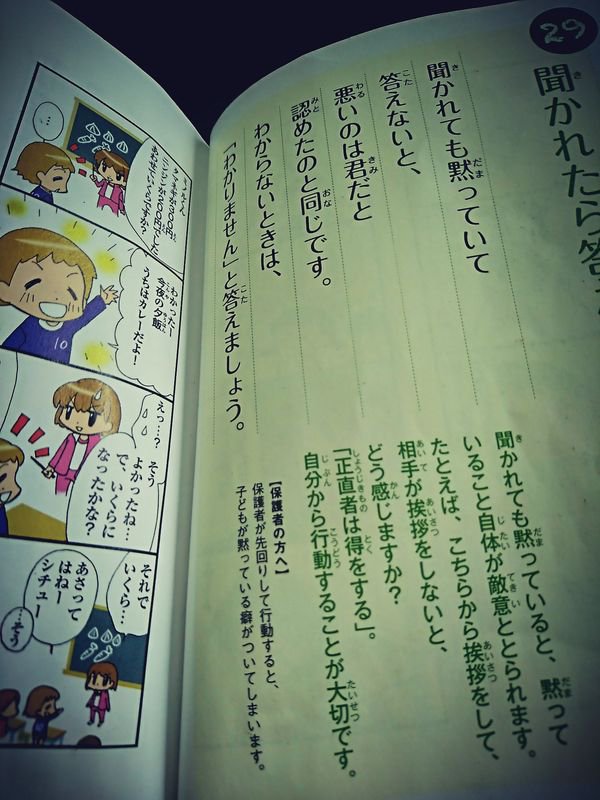 29
聞かれたら答え
聞かれても黙っていて
答えないと、
悪いのは君だと
認めたのと同じです。
わからないときは、
「わかりません」と答えましょう。
聞かれても黙っていると、黙って
いること自体が敵意ととられます。
たとえば、こちらから挨拶をして、
相手が挨拶をしないと、
どう感じますか?
「正直者は得をする」。
自分から行動することが大切です。
【保護者の方へ】
保護者が先回りして行動すると、
子どもが黙っている癖がついてしまいます。
タマネギが
ニンジンが200円でした
あわせていくらですか?
…
わかったー
今夜の夕飯
うちはカレーだよ!
10
えっ…?
そう
よかったね…
で、いくらに
なったかな?
それで
いくら…
あさって
はねー
シチュー
…そう